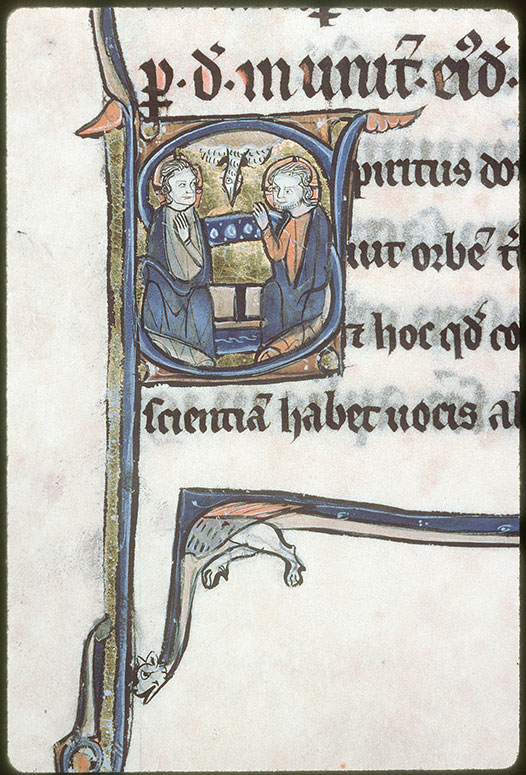 ꝑ · d̄ · munit̄ · eiꝰd̄ ·
Spiritus do
uit orbē t̄
⁊ hoc qd̄ co
scientiā habet uocis al